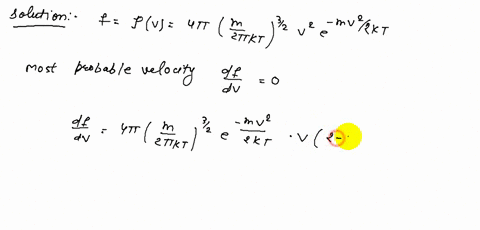 Solution:- f = f(v) = 4π (m/2πKT)^3/2 v² e^-mv²/2KT
most probable velocity df/dv = 0
df/dv = 4π (m/2πKT)^3/2 e^-mv²/2KT · v (2-